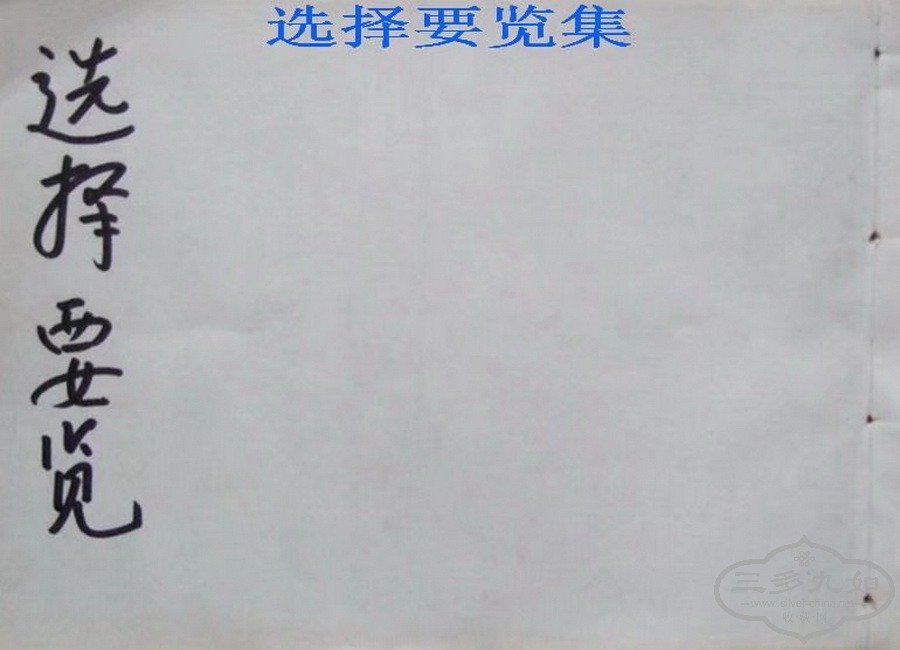 选择要览集
选择要览
三多九如
收藏网